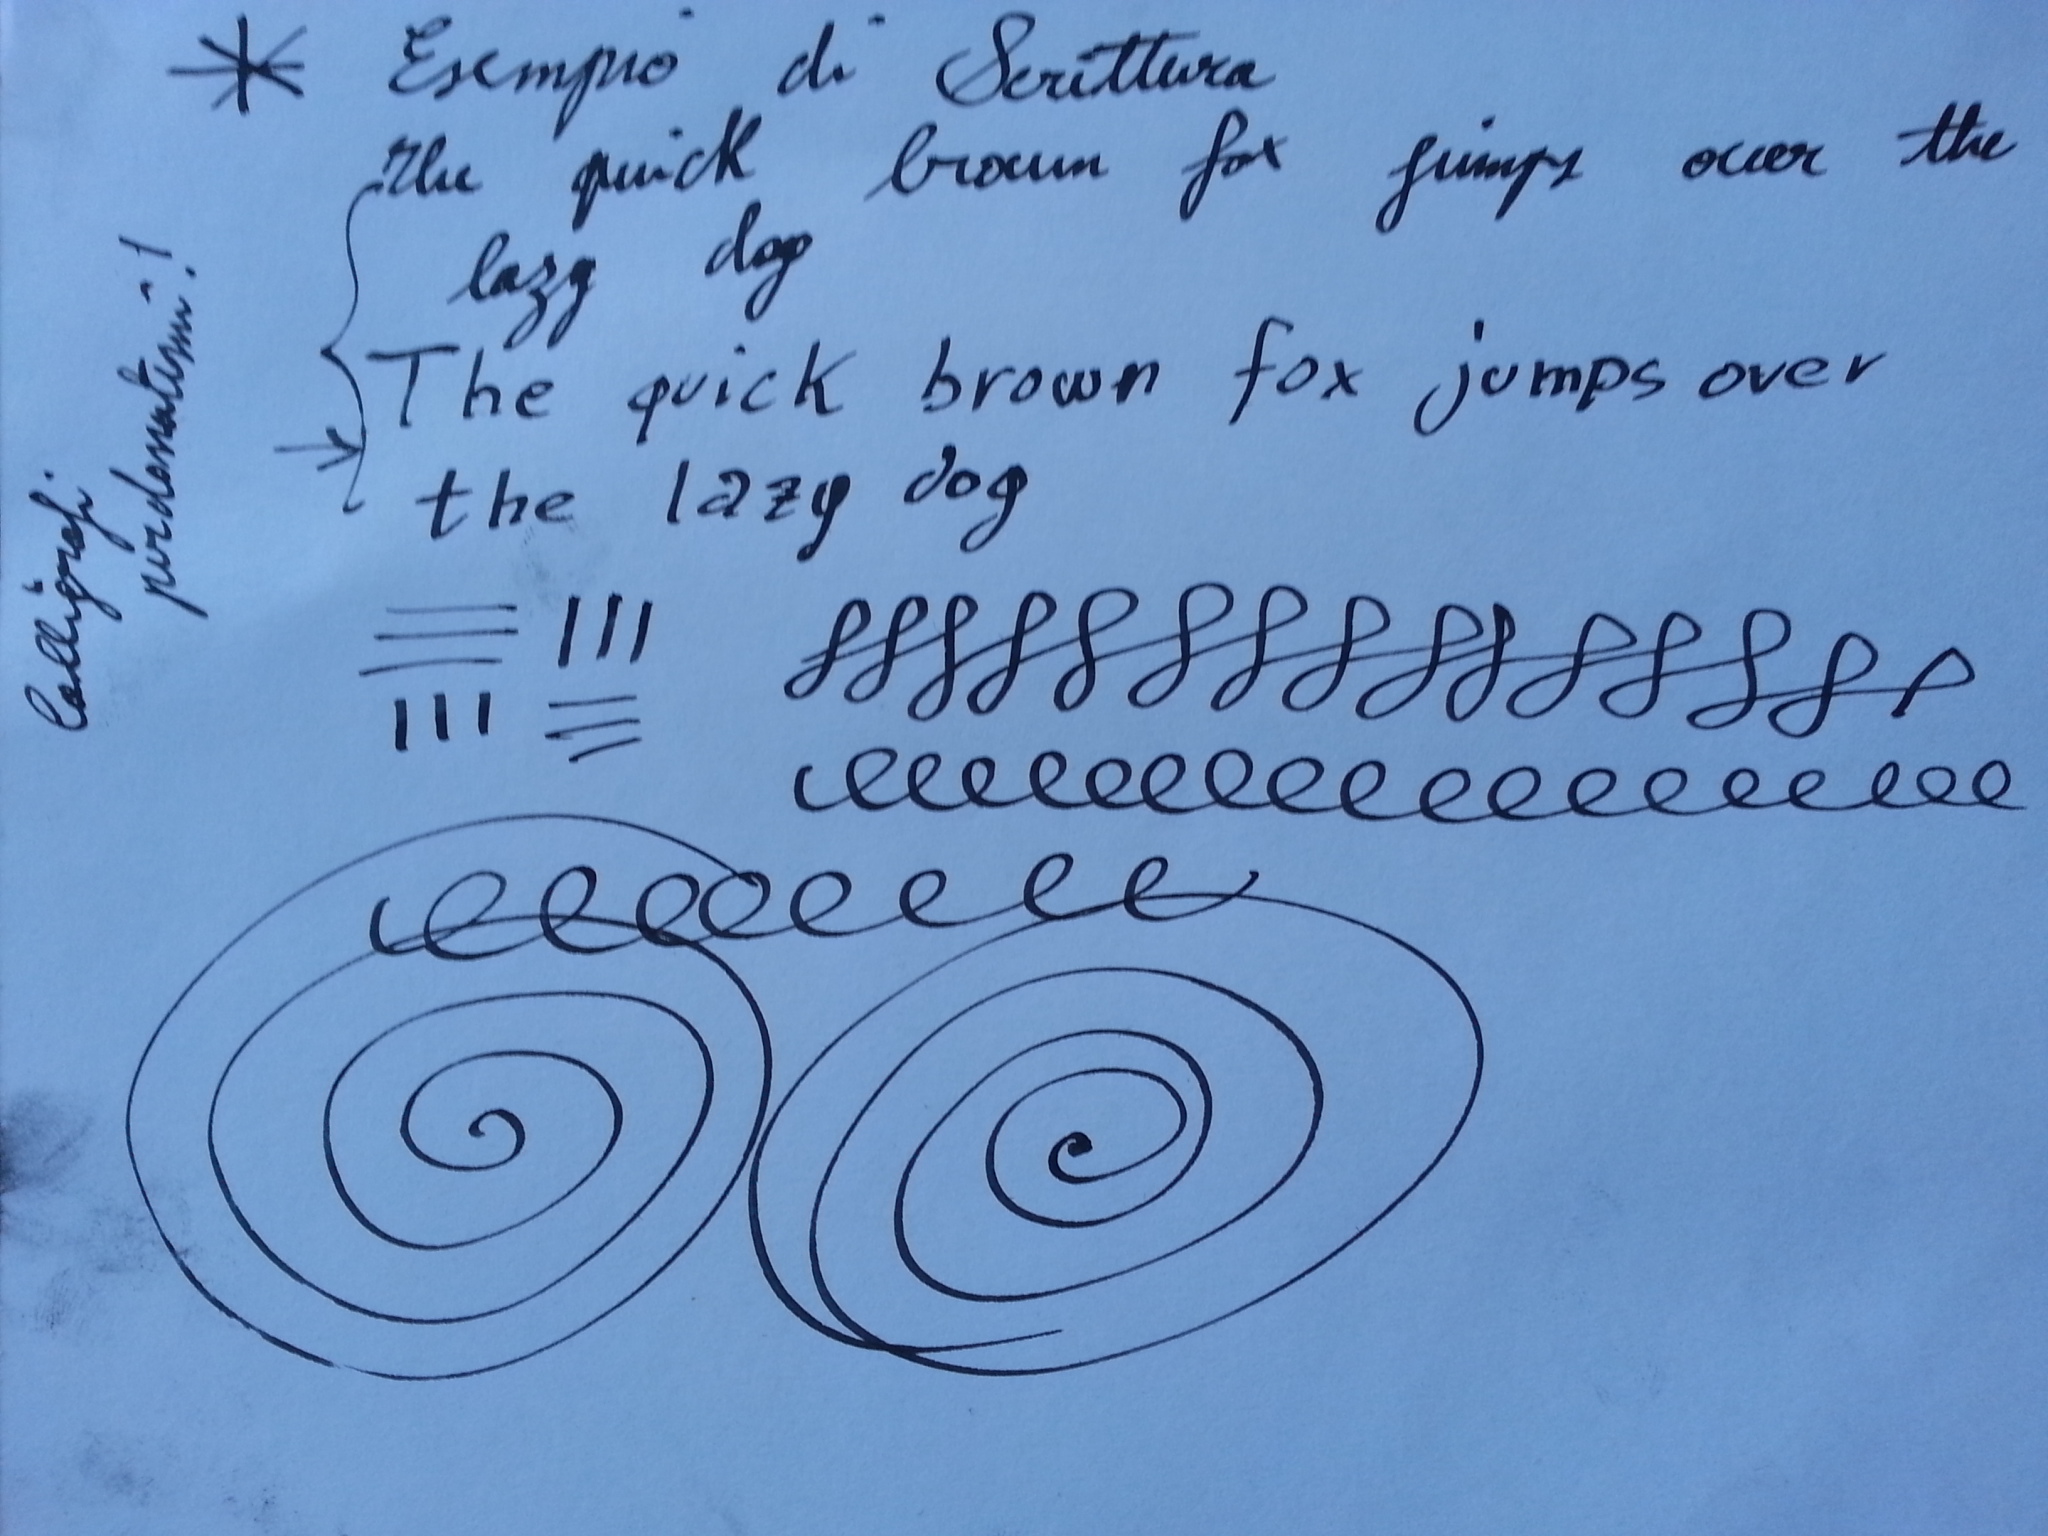 Esempio di Scrittura
The quick brown fox jumps over the
lazy dog
The quick brown fox jumps over
the lazy dog
Calligrafi
perdonatemi!